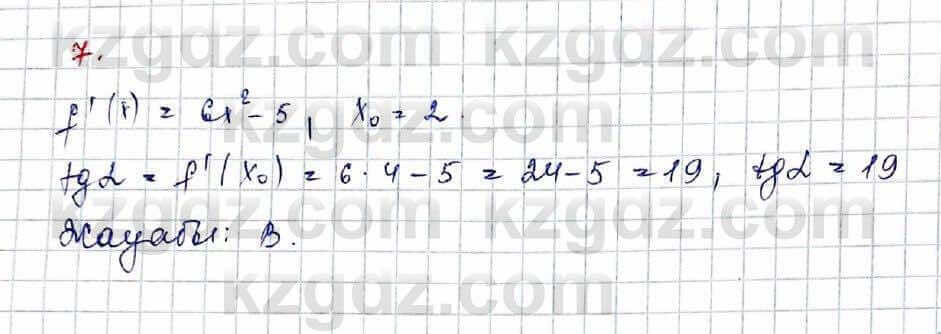 7.
f'(x) = 6x² - 5, x₀ = 2.
tg α = f'(x₀) = 6·4 - 5 = 24 - 5 = 19, tg α = 19
Жауабы: В.
kzgdz.com kzgdz.com
kzgdz.com kzgdz.com
kzgdz.com kzgdz.com
kzgdz.com